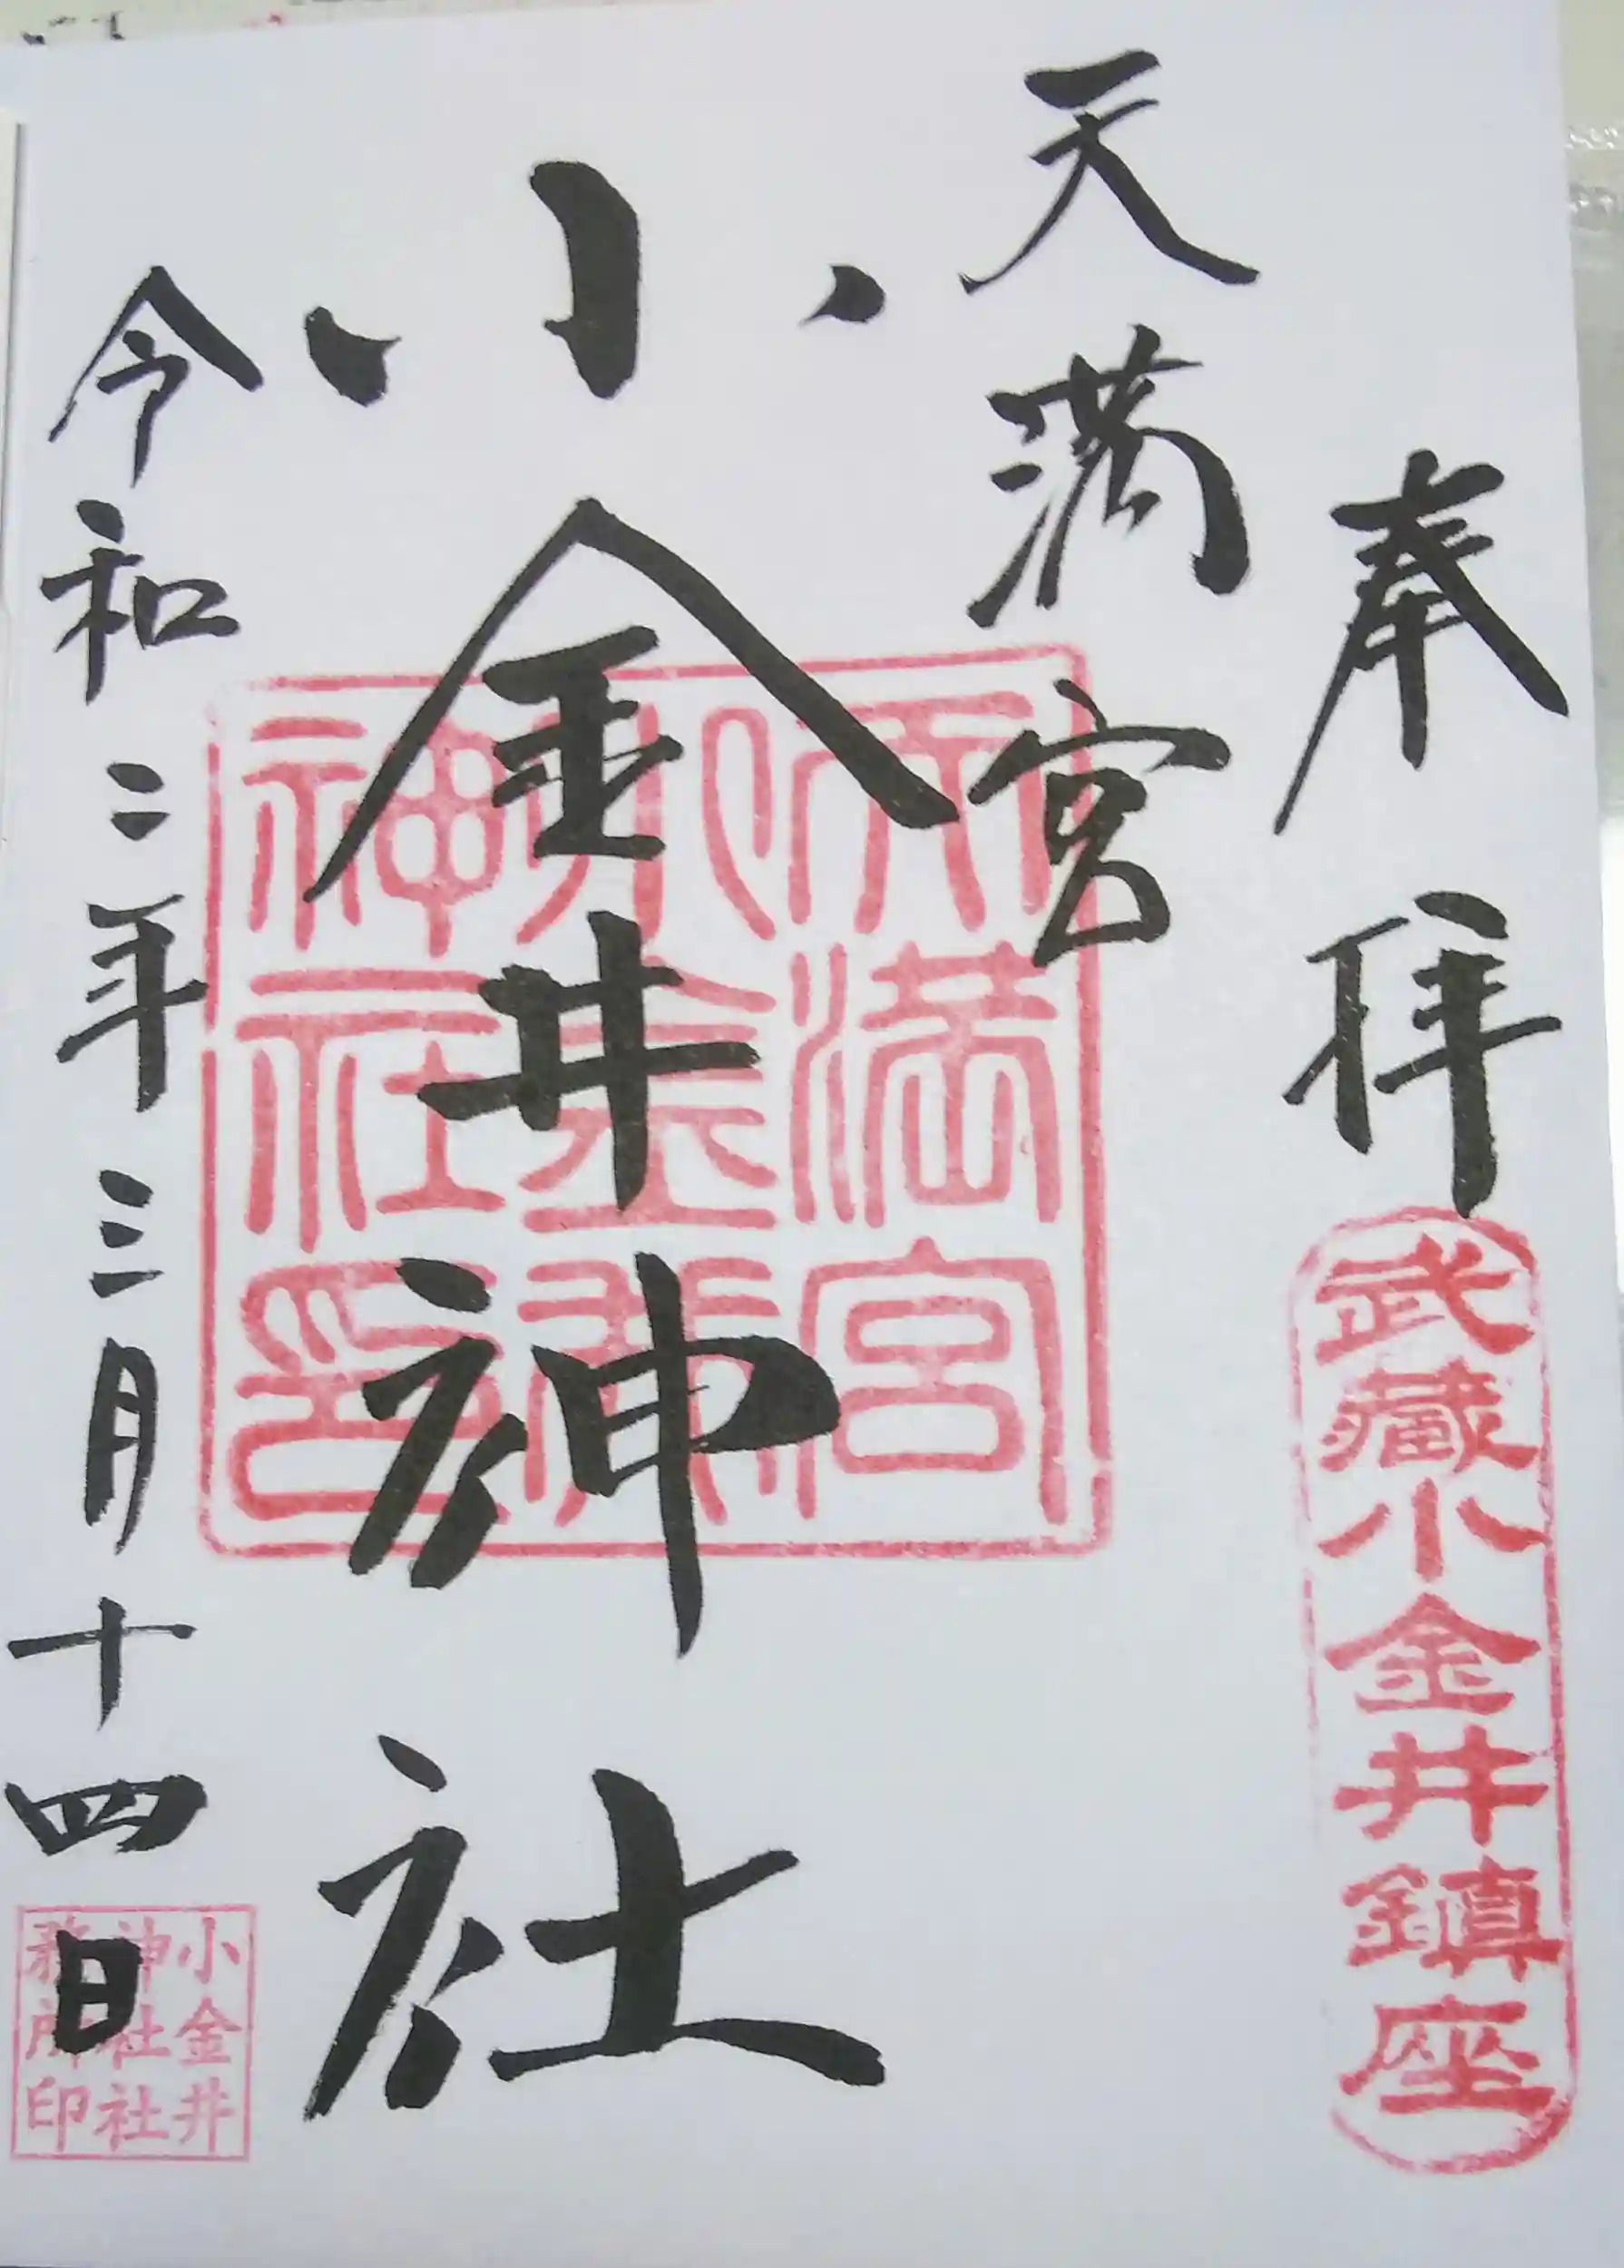 奉拝
武蔵小金井鎮座
天満宮
小金井神社
天満宮
小金井
神社印
令和二年三月十四日
小金井
神社社
務所印